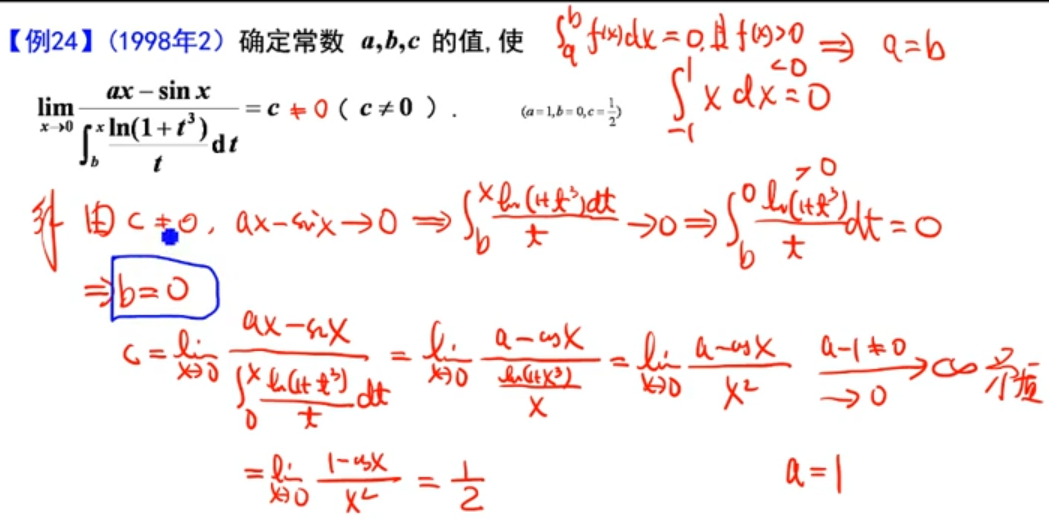 【例24】(1998年2) 确定常数 a,b,c 的值,使 ∫_a^b f(x)dx = 0,且 f(x)>0 ⇒ a=b
<0
lim_{x→0} (ax − sin x)/(∫_b^x ln(1+t³)/t dt) = c ≠ 0 ( c ≠ 0 ) . (a=1,b=0,c=1/2) ∫_{-1}^1 x dx = 0
解 由 c≠0, ax−sinx→0 ⇒ ∫_b^x ln(1+t³)dt/t →0 ⇒ ∫_b^0 ln(1+t³)/t dt = 0
>0
⇒ b=0
c = lim_{x→0} (ax−sinx)/(∫_0^x ln(1+t³)/t dt) = lim_{x→0} (a−cosx)/(ln(1+x³)/x) = lim_{x→0} (a−cosx)/x² a−1≠0 →0 → ∞
= lim_{x→0} (1−cosx)/x² = 1/2 a=1